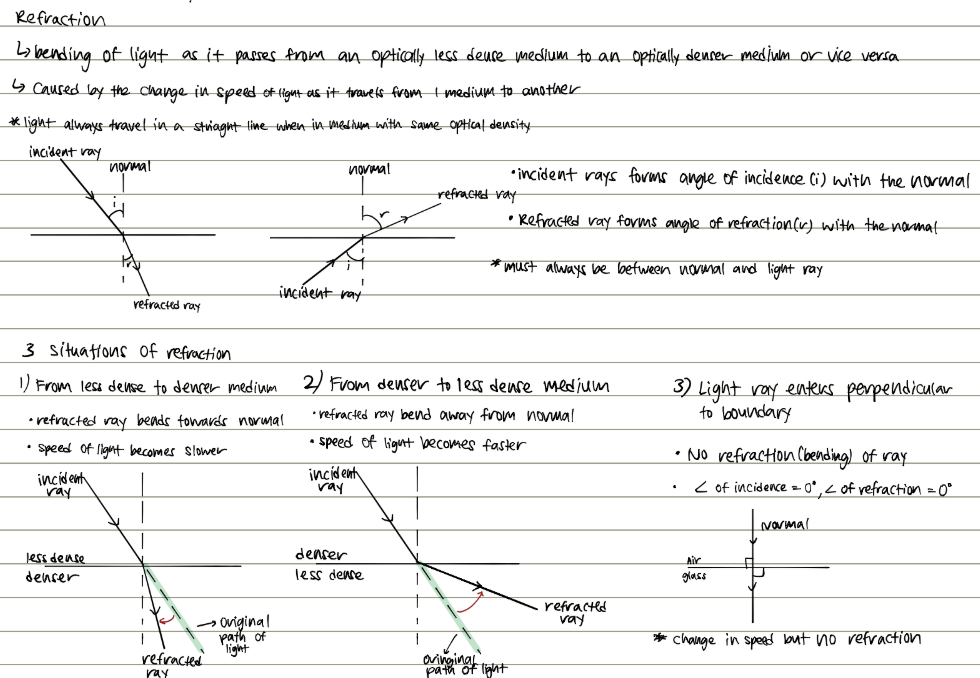 Refraction
↳ bending of light as it passes from an optically less dense medium to an optically denser medium or vice versa
↳ Caused by the change in speed of light as it travels from 1 medium to another
* light always travel in a striaght line when in medium with same optical density
incident ray
normal
i
r
refracted ray
normal
refracted ray
r
i
incident ray
• incident rays forms angle of incidence (i) with the normal
• Refracted ray forms angle of refraction (r) with the normal
* must always be between normal and light ray
3 situations of refraction
1) From less dense to denser medium
• refracted ray bends towards normal
• speed of light becomes slower
incident
ray
less dense
denser
→ original
path of
light
refracted
ray
2) From denser to less dense medium
• refracted ray bend away from normal
• speed of light becomes faster
incident
ray
denser
less dense
refracted
ray
ovinginal
path of light
3) Light ray enters perpendicular
to boundary
• No refraction (bending) of ray
• ∠ of incidence = 0°, ∠ of refraction = 0°
Normal
Air
glass
* change in speed but no refraction